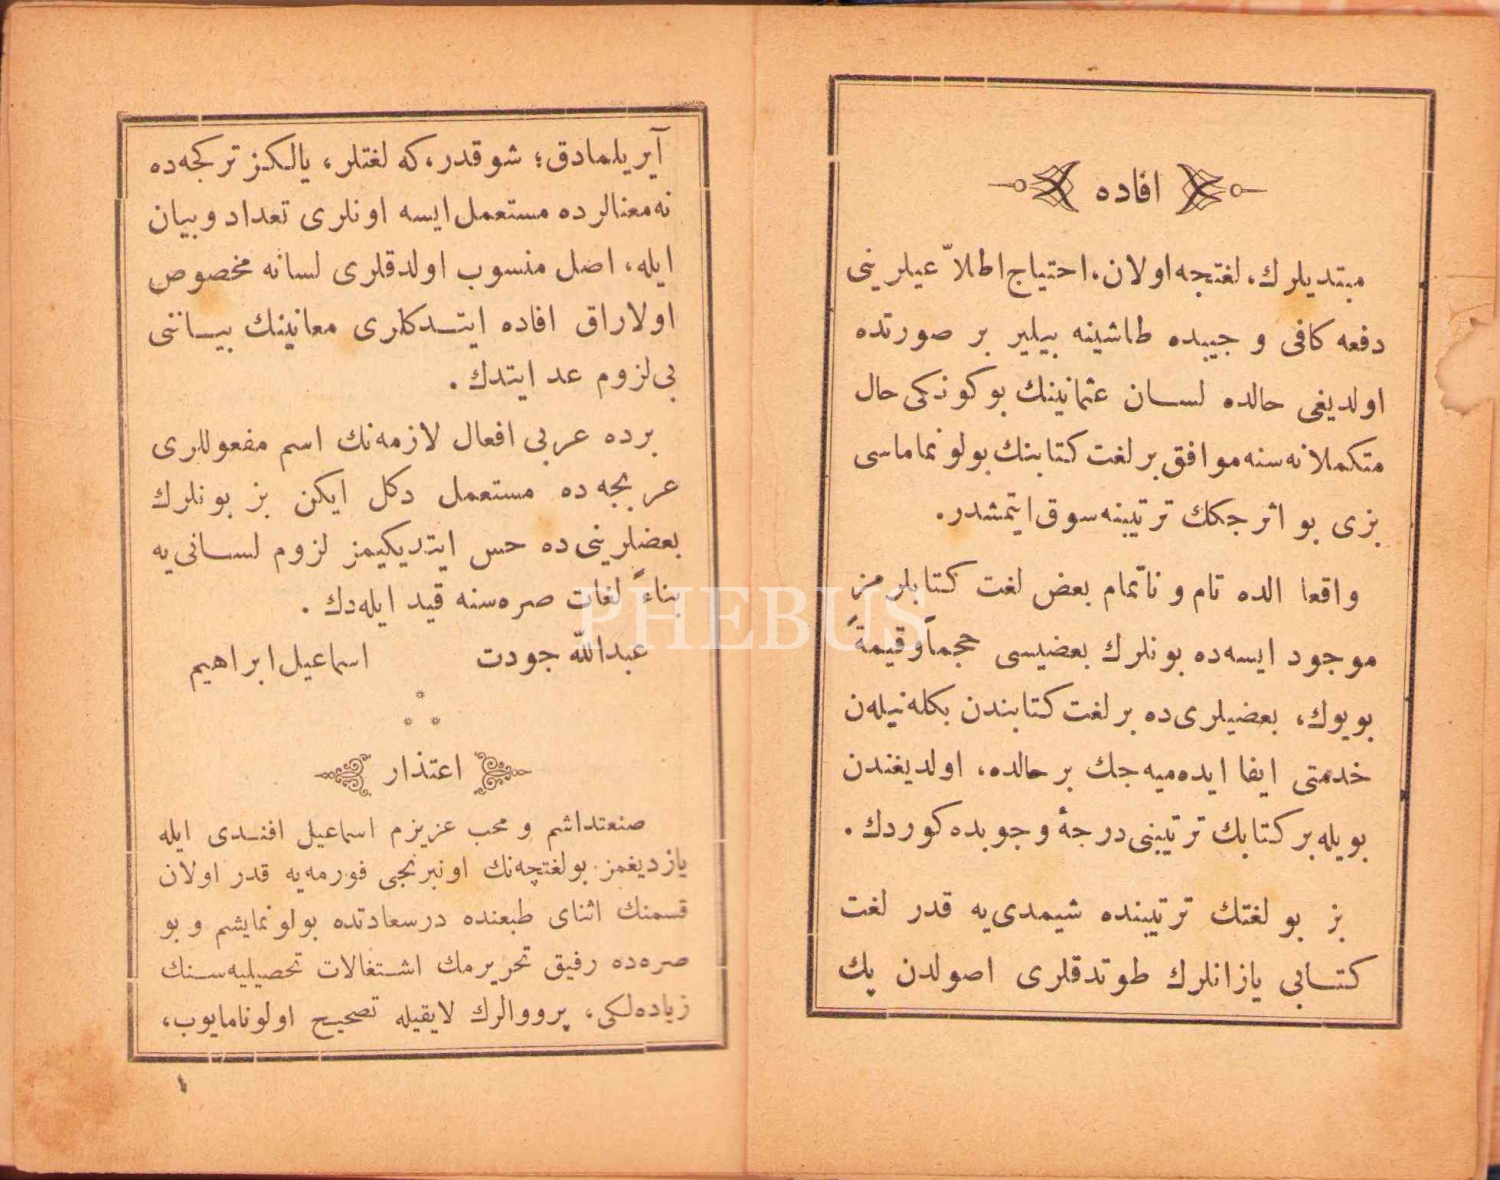 افاده
مبتدیلرك، لغتجه اولان، احتیاج اطلاّعیلرینی
دفعه كافی و جیبده طاشینه بیلیر بر صورتده
اولدیغی حالده لسان عثمانینك بوكونكی حال
متكملانه‌سنه موافق بر لغت كتابنك بولونماماسی
بزی بو اثرجكك ترتیبنه سوق ایتمشدر.
واقعا الده تام و ناتمام بعض لغت كتابلرمز
موجود ایسه‌ده بونلرك بعضیسی حجماً و قیمةً
بویوك، بعضیلری‌ده بر لغت كتابندن بكله‌نیله‌ن
خدمتی ایفا ایده‌میه‌جك بر حالده، اولدیغندن
بویله بر كتابك ترتیبنی درجهٔ وجوبده كوردك.
بز بو لغتك ترتیبنده شیمدی‌یه قدر لغت
كتابی یازانلرك طوتدقلری اصولدن پك
آیریلمادق؛ شو قدر، كه لغتلر، یالكز تركجه‌ده
نه معنالرده مستعمل ایسه اونلری تعداد و بیان
ایله، اصل منسوب اولدقلری لسانه مخصوص
اولاراق افاده ایتدكلری معانینك بیاننی
بی‌لزوم عد ایتدك.
برده عربی افعال لازمه‌نك اسم مفعوللری
عربجه‌ده مستعمل دكل ایكن بز بونلرك
بعضلرینی‌ده حس ایتدیكیمز لزوم لسانی‌یه
بناءً لغات صره‌سنه قید ایله‌دك.
عبدالله جودت اسماعیل ابراهیم
*
* *
اعتذار
صنعتداشم و محب عزیزم اسماعیل افندی ایله
یازدیغمز بو لغتچه‌نك اونبرنجی فورمه‌یه قدر اولان
قسمنك اثنای طبعنده درسعادتده بولونمایشم و بو
صره‌ده رفیق تحریرمك اشتغالات تحصیلیه‌سنك
زیاده‌لكی، پرووالرك لایقیله تصحیح اولونامایوب،
PHEBUS